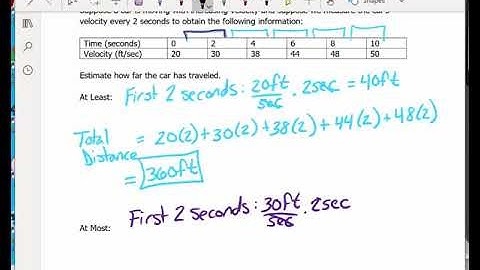 Suppose a car is moving with increasing velocity and suppose we measure the car's
velocity every 2 seconds to obtain the following information:
Time (seconds) 0 2 4 6 8 10
Velocity (ft/sec) 20 30 38 44 48 50
Estimate how far the car has traveled.
At Least: First 2 seconds: 20ft/sec · 2sec = 40ft
Total Distance = 20(2)+30(2)+38(2)+44(2)+48(2)
= 360ft
At Most: First 2 seconds: 30ft/sec · 2sec